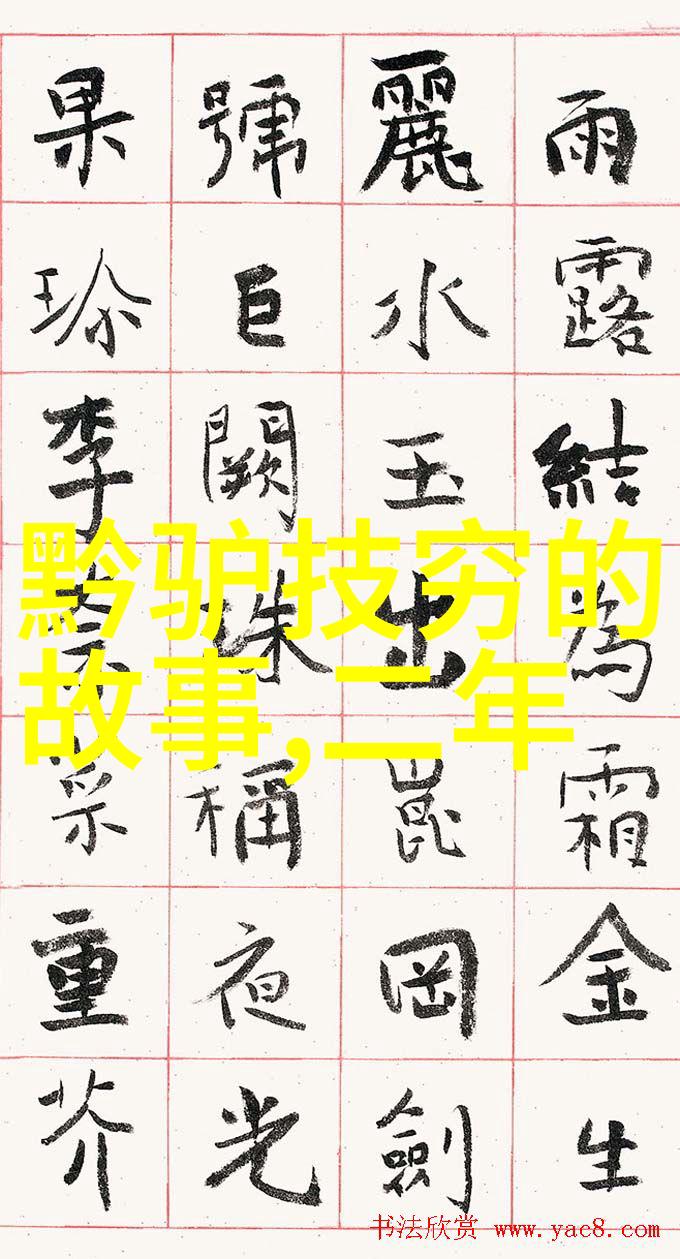 雨露結為霜金生
麗水玉出崑岡劍
號巨闕珠稱夜光
果珍李柰菜重芥
黔驴技穷的
故事,二年
书法欣赏 www.yac8.com